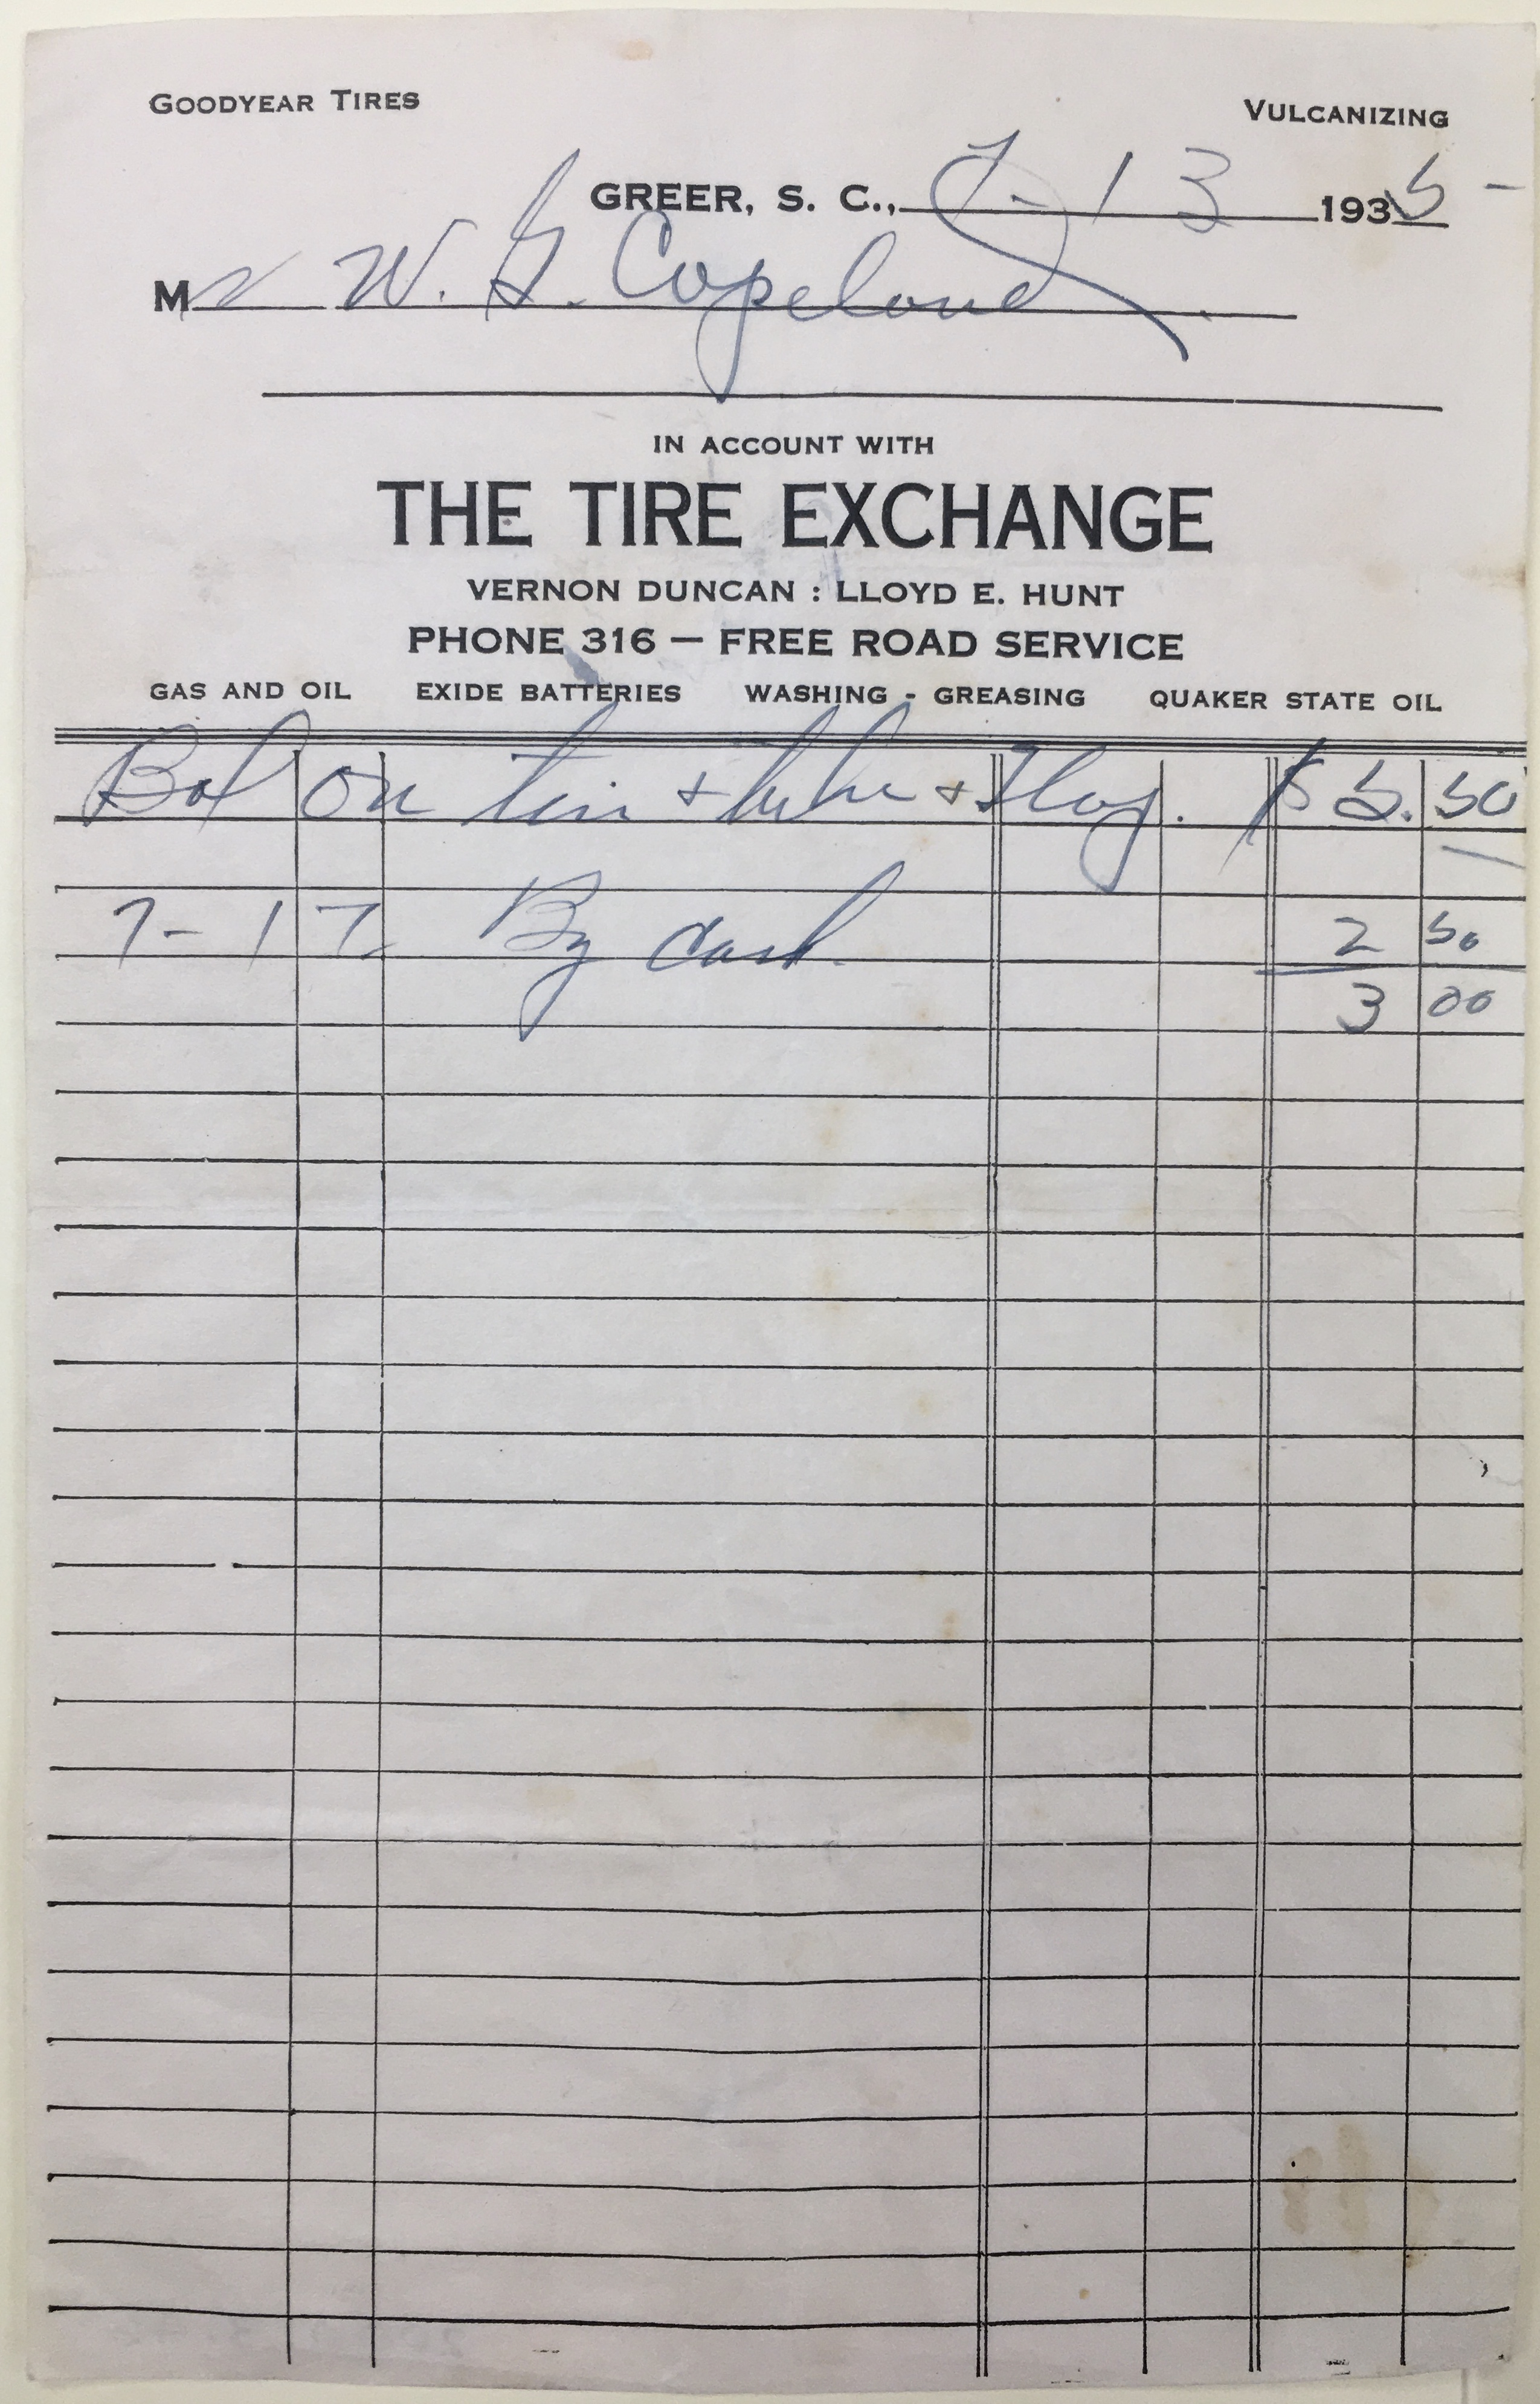 GOODYEAR TIRES VULCANIZING
GREER, S. C., 7-13 1935-
Mr W. G. Copeland
IN ACCOUNT WITH
THE TIRE EXCHANGE
VERNON DUNCAN : LLOYD E. HUNT
PHONE 316 — FREE ROAD SERVICE
GAS AND OIL EXIDE BATTERIES WASHING - GREASING QUAKER STATE OIL
Bal on tire + tube + $ 5.50
7-17 By cash. 2 50
3 00